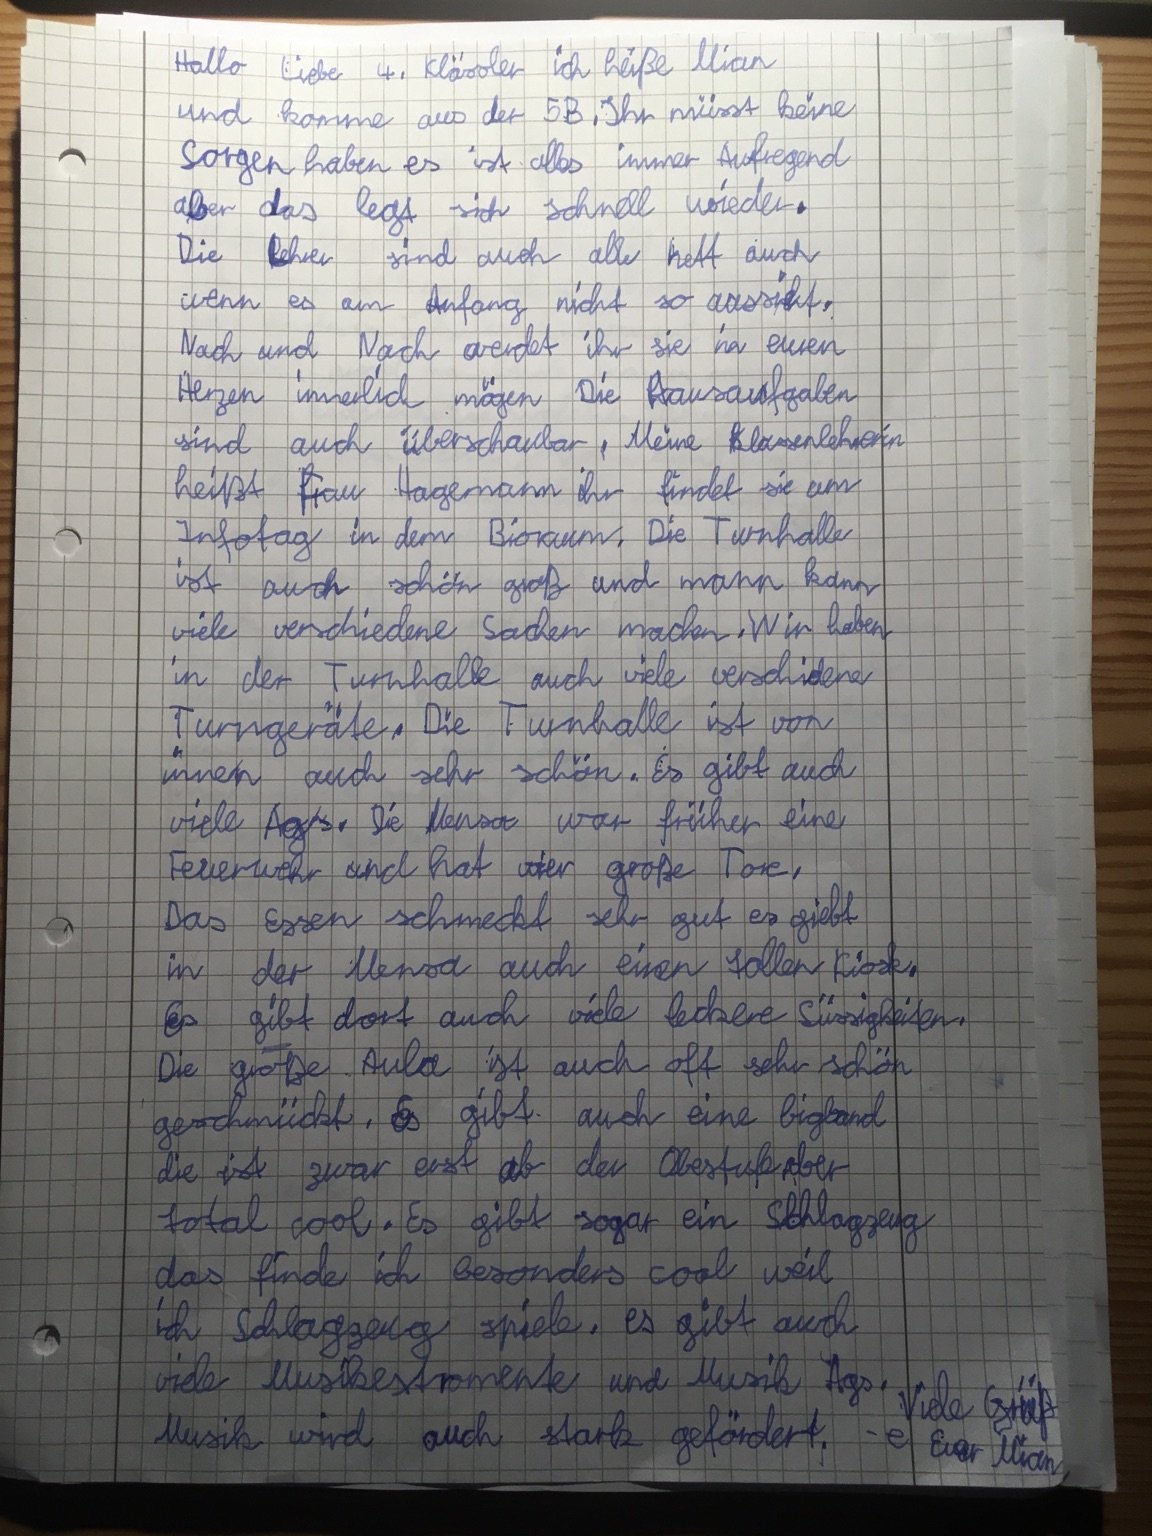 Hallo Liebe 4. Klässler ich heiße Mian
und komme aus der 5B. Ihr müsst keine
Sorgen haben es ist alles immer Aufregend
aber das legt sich schnell wieder.
Die Lehrer sind auch alle nett auch
wenn es am Anfang nicht so aussieht.
Nach und Nach werdet ihr sie in euren
Herzen innerlich mögen Die Hausaufgaben
sind auch überschaubar. Meine Klassenlehrerin
heißt Frau Hagemann ihr findet sie am
Infotag in dem Bioraum. Die Turnhalle
ist auch schön groß und mann kann
viele verschiedene Sachen machen. Wir haben
in der Turnhalle auch viele verschidene
Turngeräte. Die Turnhalle ist von
innen auch sehr schön. Es gibt auch
viele Ag's. Die Mensa war früher eine
Feuerwehr und hat vier große Tore.
Das Essen schmeckt sehr gut es giebt
in der Mensa auch einen tollen Kiosk.
Es gibt dort auch viele leckere Süssigkeiten.
Die große Aula ist auch oft sehr schön
geschmückt. Es gibt auch eine bigband
die ist zwar erst ab der Obestufe aber
total cool. Es gibt sogar ein Schlagzeug
das finde ich besonders cool weil
ich Schlagzeug spiele. es gibt auch
viele Musikestromente und Musik Ags.
Musik wird auch stark gefördert.
Viele Grüß
-e Euer Mian